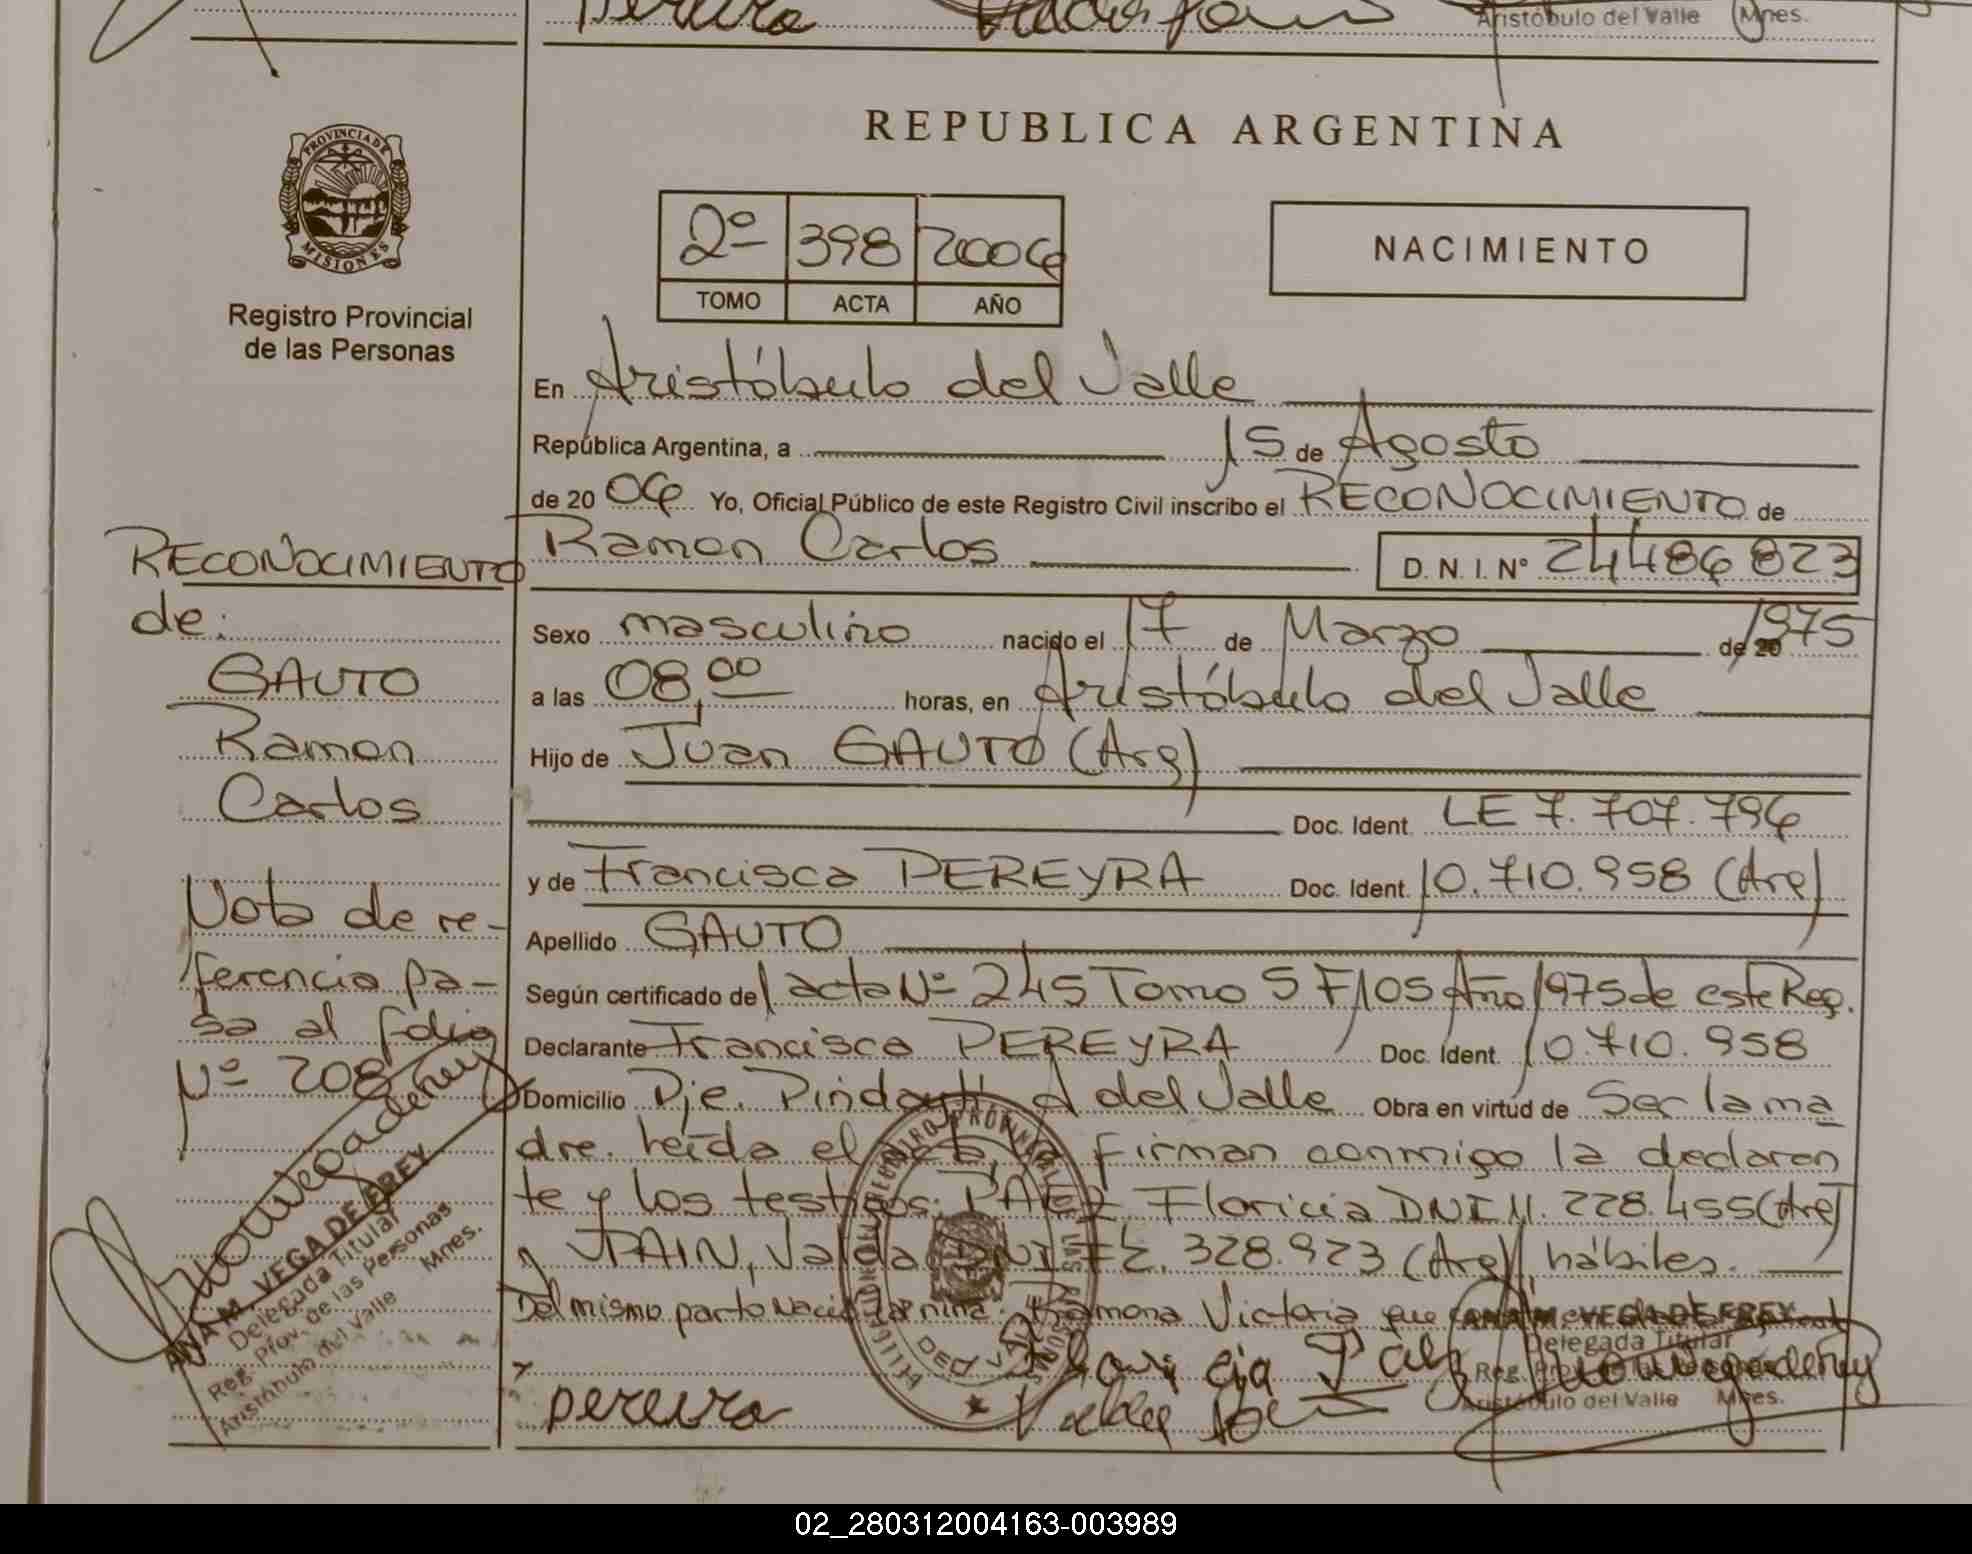 Pereira
Aristóbulo del Valle Mnes.
REPUBLICA ARGENTINA
PROVINCIA DE
MISIONES
Registro Provincial
de las Personas
2º 398 2006
TOMO ACTA AÑO
NACIMIENTO
En Aristóbulo del Valle
República Argentina, a 15 de Agosto
de 2006 Yo, Oficial Público de este Registro Civil inscribo el RECONOCIMIENTO de
Ramon Carlos D. N. I. Nº 24486823
Sexo masculino nacido el 17 de Marzo de 20 1975
a las 08,00 horas, en Aristóbulo del Valle
Hijo de Juan GAUTO (Arg)
Doc. Ident. LE 7.707.796
y de Francisca PEREYRA Doc. Ident. 10.710.958 (Arg)
Apellido GAUTO
Según certificado de acta Nº 245 Tomo 5 F/105 Año 1975 de este Reg.
Declarante Francisca PEREYRA Doc. Ident. 10.710.958
Domicilio Pje. Pindayti A del Valle Obra en virtud de Ser la ma
dre. leída el acta, la firman conmigo la declaran
te y los testigos: PAEZ Floricia DNI 11.228.455 (Arg)
y JPAIN, Valda DNI 328.923 (Arg), hábiles.
Del mismo parto Nació la niña: Ramona Victoria que
RECONOCIMIENTO
de:
GAUTO
Ramon
Carlos
Nota de re-
ferencia pa-
sa al folio
Nº 208
ANA M. VEGA DE FREY
Delegada Titular
Reg. Prov. de las Personas
Aristóbulo del Valle Mnes.
pereira
ANA M. VEGA DE FREY
Delegada Titular
Aristóbulo del Valle Mnes.
02_280312004163-003989